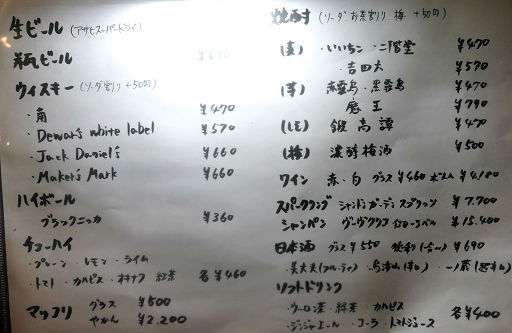 生ビール (アサヒスーパードライ)
瓶ビール ¥690
ウィスキー (ソーダ割り +50円)
・角 ¥470
・Dewar's white label ¥570
・Jack Daniel's ¥660
・Maker's Mark ¥660
ハイボール
ブラックニッカ ¥360
チューハイ
・プレーン ・レモン ・ライム
・トマト ・カルピス ・ 紅茶 各¥460
マッコリ グラス ¥500
やかん ¥2,200
焼酎 (ソーダ、お茶割り、梅 +50円)
(麦) ・いいちこ ・二階堂 ¥470
・吉四六 ¥570
(芋) 赤霧島 ・黒霧島 ¥470
魔王 ¥790
(しそ) 鍛高譚 ¥470
(梅) 濃醇梅酒 ¥500
ワイン 赤・白 グラス ¥460 ボトル ¥4,180
スパークリング シャンドン ガーデン スプリッツ ¥7,700
シャンパン ヴーヴクリコ イエローラベル ¥15,400
日本酒 グラス ¥550 徳利(一合〜) ¥690
・美丈夫(フルーティ) ・鳥海山(辛口) ・一ノ蔵(超辛口)
ソフトドリンク
・ウーロン茶 ・緑茶 ・カルピス
・ジンジャエール ・コーラ ・トマトジュース 各¥400